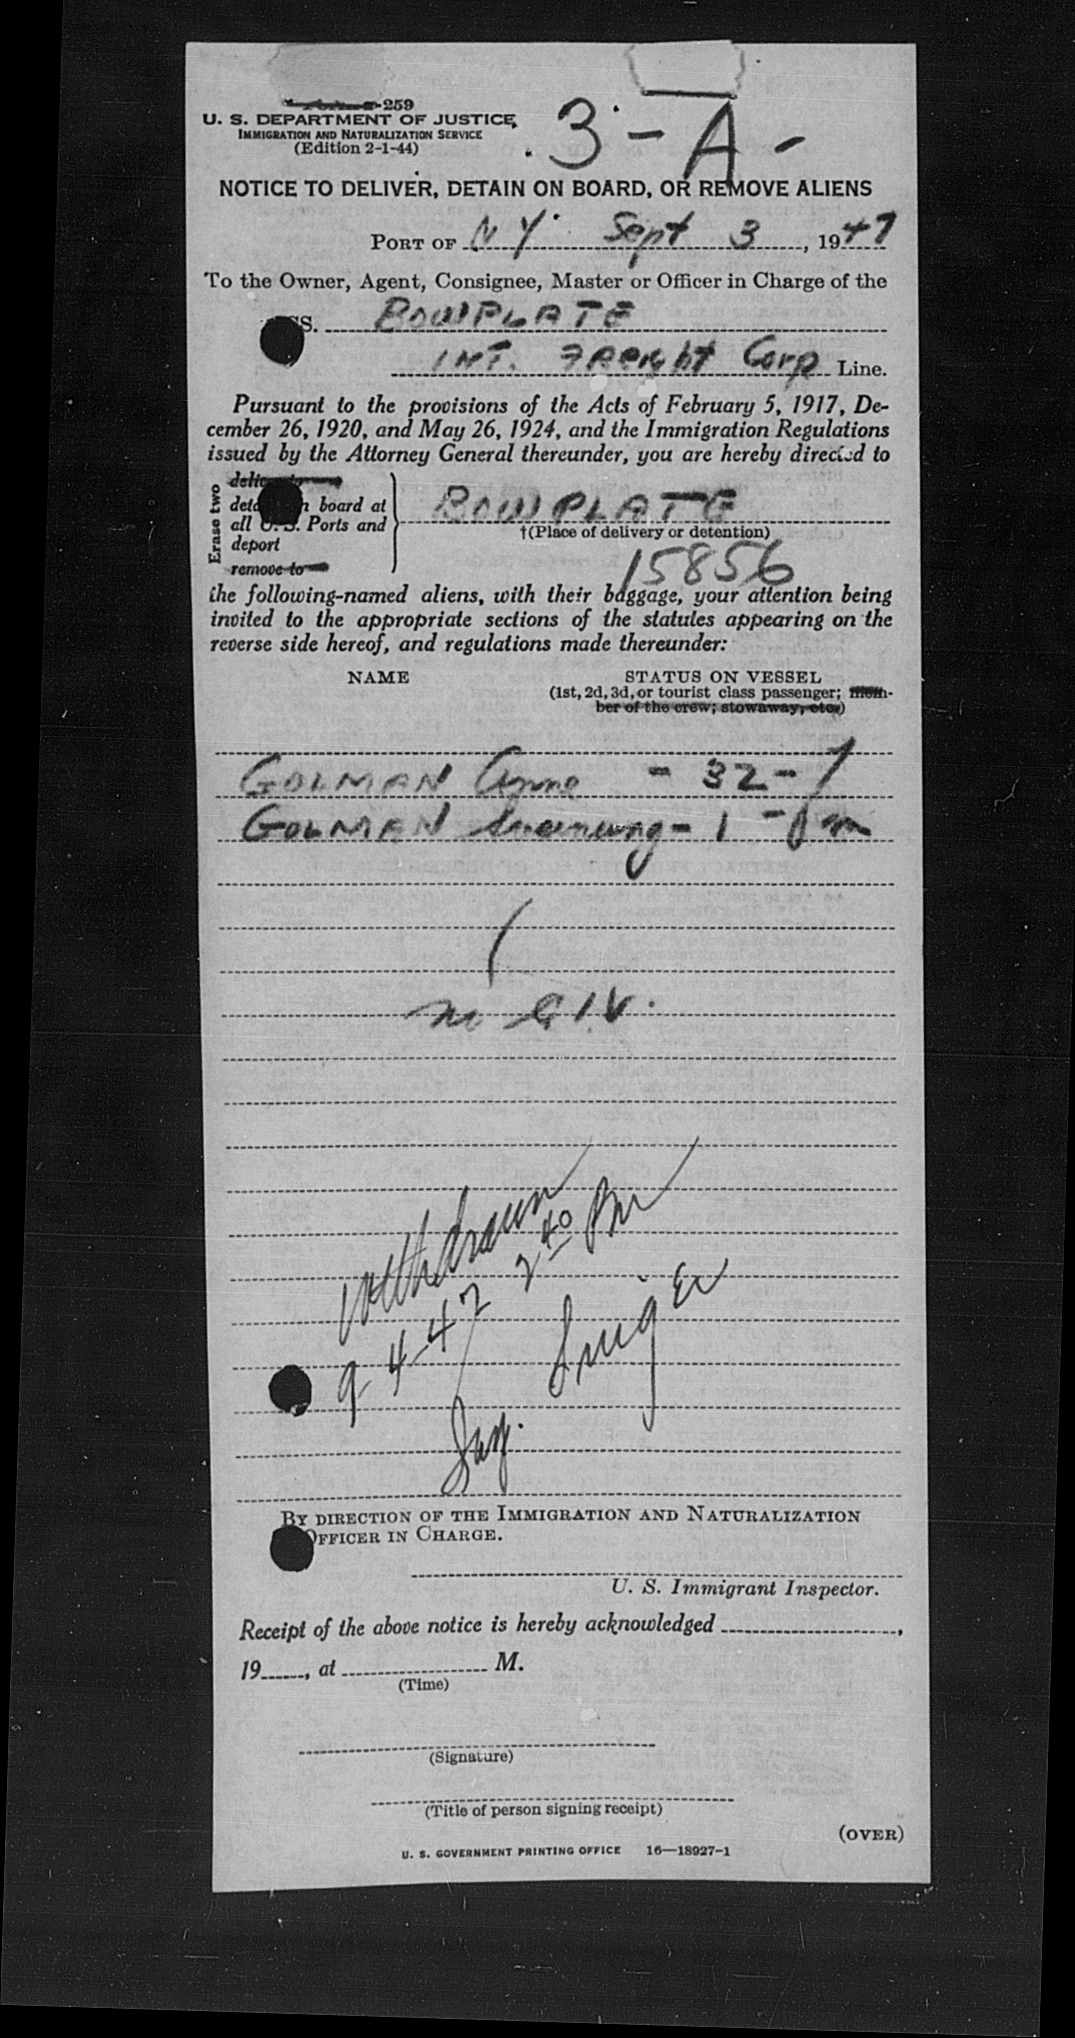 259
U. S. DEPARTMENT OF JUSTICE
IMMIGRATION AND NATURALIZATION SERVICE
(Edition 2-1-44)
3-A-
NOTICE TO DELIVER, DETAIN ON BOARD, OR REMOVE ALIENS
PORT OF NY. Sept 3, 1947
To the Owner, Agent, Consignee, Master or Officer in Charge of the
SS. BOWPLATE
INT. Freight Corp Line.
Pursuant to the provisions of the Acts of February 5, 1917, De-
cember 26, 1920, and May 26, 1924, and the Immigration Regulations
issued by the Attorney General thereunder, you are hereby directed to
Erase two
board at
all U.S. Ports and
deport
remove to
BOWPLATE
†(Place of delivery or detention)
15856
the following-named aliens, with their baggage, your attention being
invited to the appropriate sections of the statutes appearing on the
reverse side hereof, and regulations made thereunder:
NAME STATUS ON VESSEL
(1st, 2d, 3d, or tourist class passenger; mem-
ber of the crew; stowaway, etc.)
GOLMAN Anne - 32 - f
GOLMAN - 1 - m
Withdrawn
9-4-47 2 40 PM
By DIRECTION OF THE IMMIGRATION AND NATURALIZATION
OFFICER IN CHARGE.
U. S. Immigrant Inspector.
Receipt of the above notice is hereby acknowledged ,
19 , at M.
(Time)
(Signature)
(Title of person signing receipt)
(OVER)
U. S. GOVERNMENT PRINTING OFFICE 16—18927-1